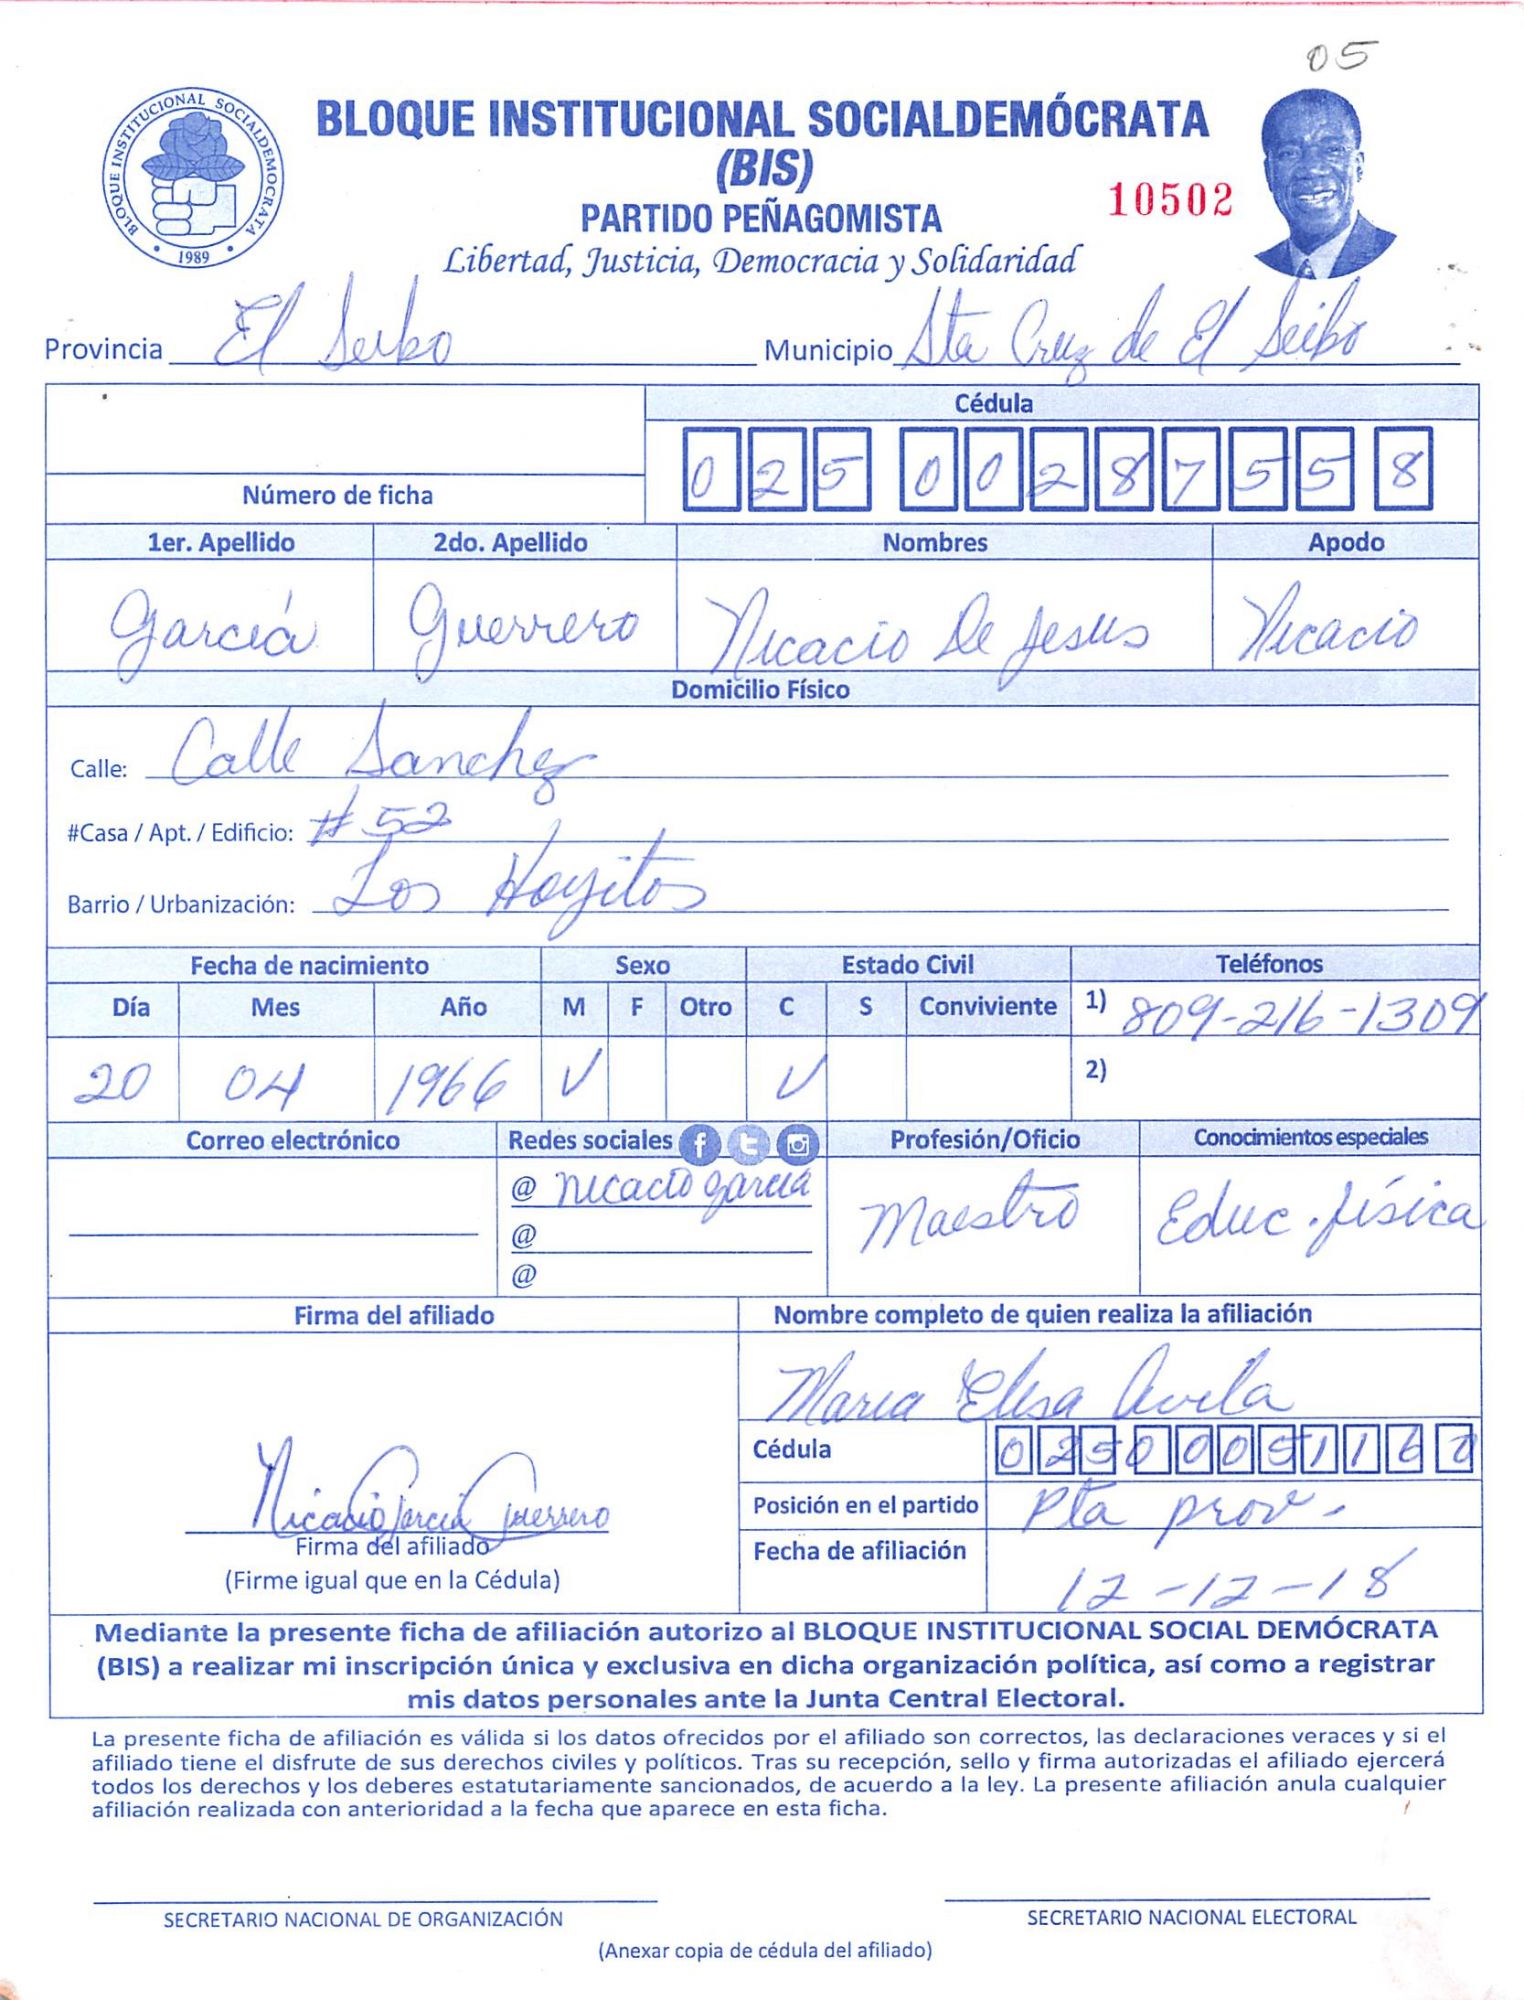 05
BLOQUE INSTITUCIONAL SOCIALDEMOCRATA
1989
BLOQUE INSTITUCIONAL SOCIALDEMÓCRATA
(BIS)
PARTIDO PEÑAGOMISTA
10502
Libertad, Justicia, Democracia y Solidaridad
Provincia El Seibo Municipio Sta Cruz de El Seibo
Cédula
025 0028755 8
Número de ficha
1er. Apellido 2do. Apellido Nombres Apodo
García Guerrero Nicacio De Jesus Nicacio
Domicilio Físico
Calle: Calle Sanchez
#Casa / Apt. / Edificio: # 52
Barrio / Urbanización: Los Hoyitos
Fecha de nacimiento Sexo Estado Civil Teléfonos
Día Mes Año M F Otro C S Conviviente 1) 809-216-1309
20 04 1966 ✓ ✓ 2)
Correo electrónico Redes sociales Profesión/Oficio Conocimientos especiales
@ nicacio garcia Maestro Educ. física
@
@
Firma del afiliado Nombre completo de quien realiza la afiliación
Maria Elisa Avila
Cédula 025 0005116
Nicacio García Guerrero
Posición en el partido Pta prov.
Firma del afiliado
Fecha de afiliación 12-12-18
(Firme igual que en la Cédula)
Mediante la presente ficha de afiliación autorizo al BLOQUE INSTITUCIONAL SOCIAL DEMÓCRATA
(BIS) a realizar mi inscripción única y exclusiva en dicha organización política, así como a registrar
mis datos personales ante la Junta Central Electoral.
La presente ficha de afiliación es válida si los datos ofrecidos por el afiliado son correctos, las declaraciones veraces y si el
afiliado tiene el disfrute de sus derechos civiles y políticos. Tras su recepción, sello y firma autorizadas el afiliado ejercerá
todos los derechos y los deberes estatutariamente sancionados, de acuerdo a la ley. La presente afiliación anula cualquier
afiliación realizada con anterioridad a la fecha que aparece en esta ficha.
SECRETARIO NACIONAL DE ORGANIZACIÓN SECRETARIO NACIONAL ELECTORAL
(Anexar copia de cédula del afiliado)